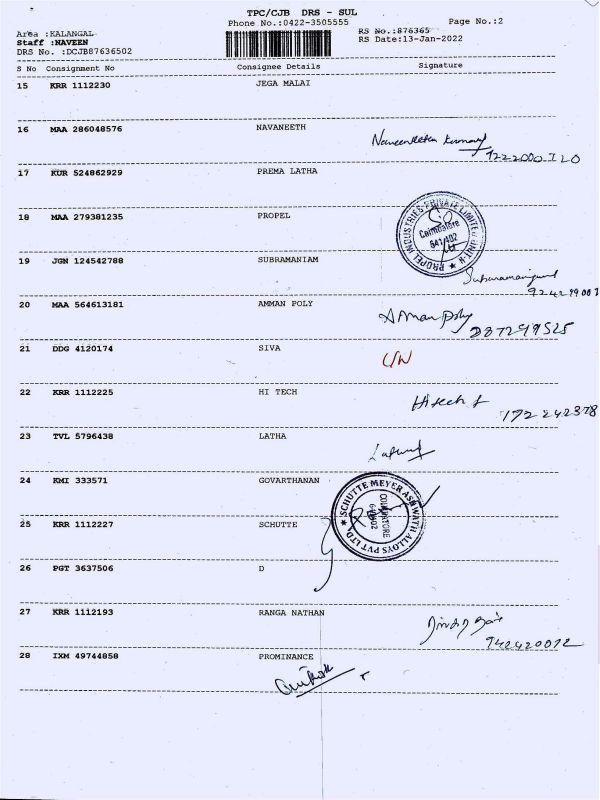 TPC/CJB DRS - SUL
Phone No.:0422-3505555 Page No.:2
Area :KALANGAL RS No.:876365
Staff :NAVEEN RS Date:13-Jan-2022
DRS No. :DCJB87636502
S No Consignment No Consignee Details Signature
15 KRR 1112230 JEGA MALAI
16 MAA 286048576 NAVANEETH
17 KUR 524862929 PREMA LATHA
18 MAA 279381235 PROPEL
PROPEL INDUSTRIES PRIVATE LIMITED
Coimbatore
641402
19 JGN 124542788 SUBRAMANIAM
20 MAA 564613181 AMMAN POLY
AMman poly
21 DDG 4120174 SIVA
22 KRR 1112225 HI TECH
Hitech
172242378
23 TVL 5796438 LATHA
24 KMI 333571 GOVARTHANAN
SCHUTTE MEYER ASHWATH ALLOYS PVT LTD.
COIMBATORE
25 KRR 1112227 SCHUTTE
26 PGT 3637506 D
27 KRR 1112193 RANGA NATHAN
28 IXM 49744858 PROMINANCE